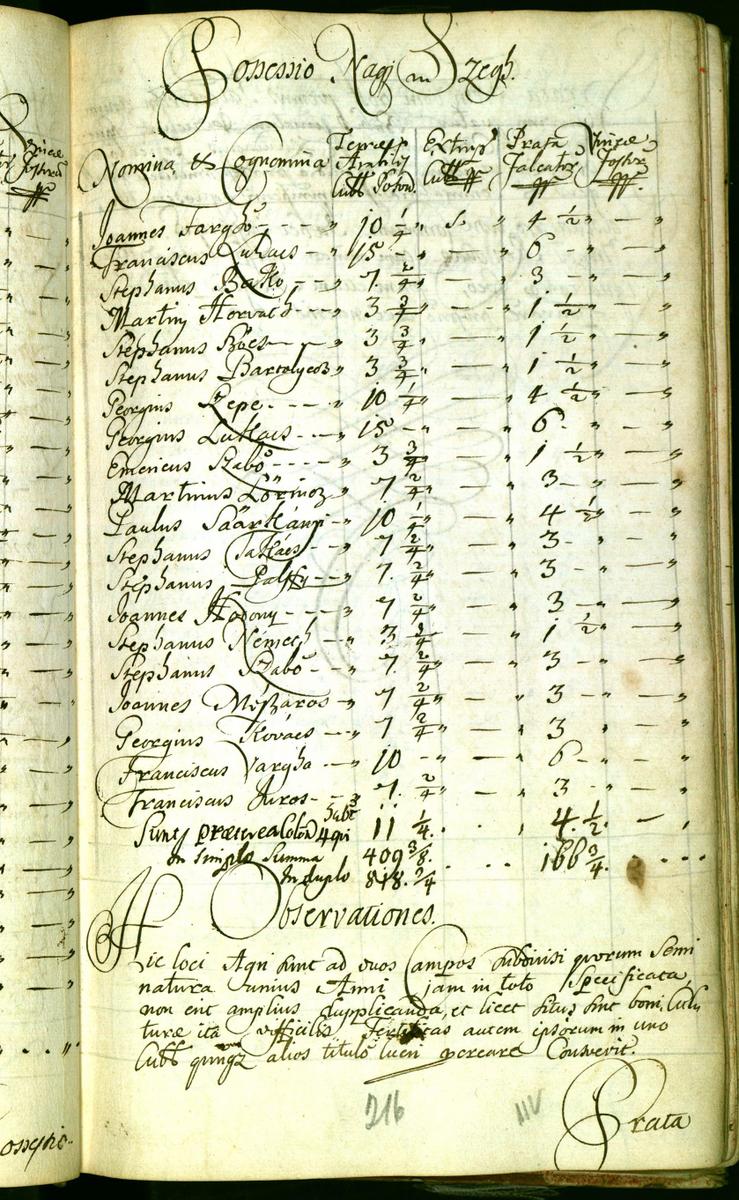 Possessio Nagy in Szegh.
Nomina, & Cognomina
Cubb Posson.
Extirp
Cubb
Prata Falcatur
Vineæ Fossor
Joannes Varghó - - - " 10 1/4 " " 4 1/2 " — "
Franciscus Lukacs - - " 15 - " — " 6 - " — "
Stephanus Bakó - - " 7 2/4 " — " 3 - " — "
Martin Horvath - - " 3 3/4 " — " 1 1/2 " — "
Stephanus Böcs - - " 3 3/4 " — " 1 1/2 " — "
Stephanus Bartalycoz " 3 3/4 " — " 1 1/2 " — "
Georgius Kepe - - - " 10 1/4 " — " 4 1/2 " — "
Georgius Lukacs - - " 15 - " — " 6 - " — "
Emericus Szabó - - - " 3 3/4 " — " 1 1/2 " — "
Martinus Lörincz " 7 2/4 " — " 3 - " — "
Paulus Säárkánÿi - " 10 1/4 " — " 4 1/2 " — "
Stephanus Takács - " 7 2/4 " — " 3 - " — "
Stephanus Palffy - " 7 2/4 " — " 3 - " — "
Joannes Hodony - - - " 7 2/4 " — " 3 - " — "
Stephanus Németh - " 3 3/4 " — " 1 1/2 " — "
Stephanus Szabó - - " 7 2/4 " — " 3 - " — "
Joannes Mészáros - " 7 2/4 " — " 3 - " — "
Georgius Kovács - - " 7 2/4 " — " 3 " — "
Franciscus Vargha - " 10 - " — " 6 - " — "
Franciscus Juros - - " 7 2/4 " — " 3 - " — "
Sunt præterea Coloni 4 qui 11 1/4 . . , 4. 1/2 - ,
In simplo Summa 409 3/8 . . . , 166 3/4 . . . .
In duplo 818. 3/4
Observationes.
Hic loci Agri sunt ad duos Campos subdivisi quorum Semi
natura unius Anni jam in toto Specificata
non erit amplius dupplicanda, et licet situs sint boni, Cul
turæ ita difficilis Fertilitas autem ipsorum in uno
Cubb alios titulo lucri percare Consvevit.
216
Prata